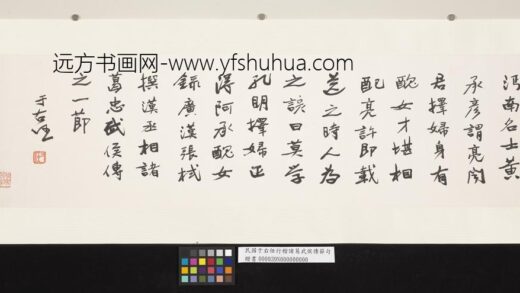 远方书画网-www.yfshuhua.com
沔南名士黃
承彥謂亮聞
君擇婦身有
醜女才堪相
配亮許即載
送之時人為
之諺曰莫學
孔明擇婦正
得阿承醜女
錄廣漢張栻
撰漢丞相諸
葛忠武侯傳
之一節
于右任
民國于右任行楷諸葛武侯傳節句